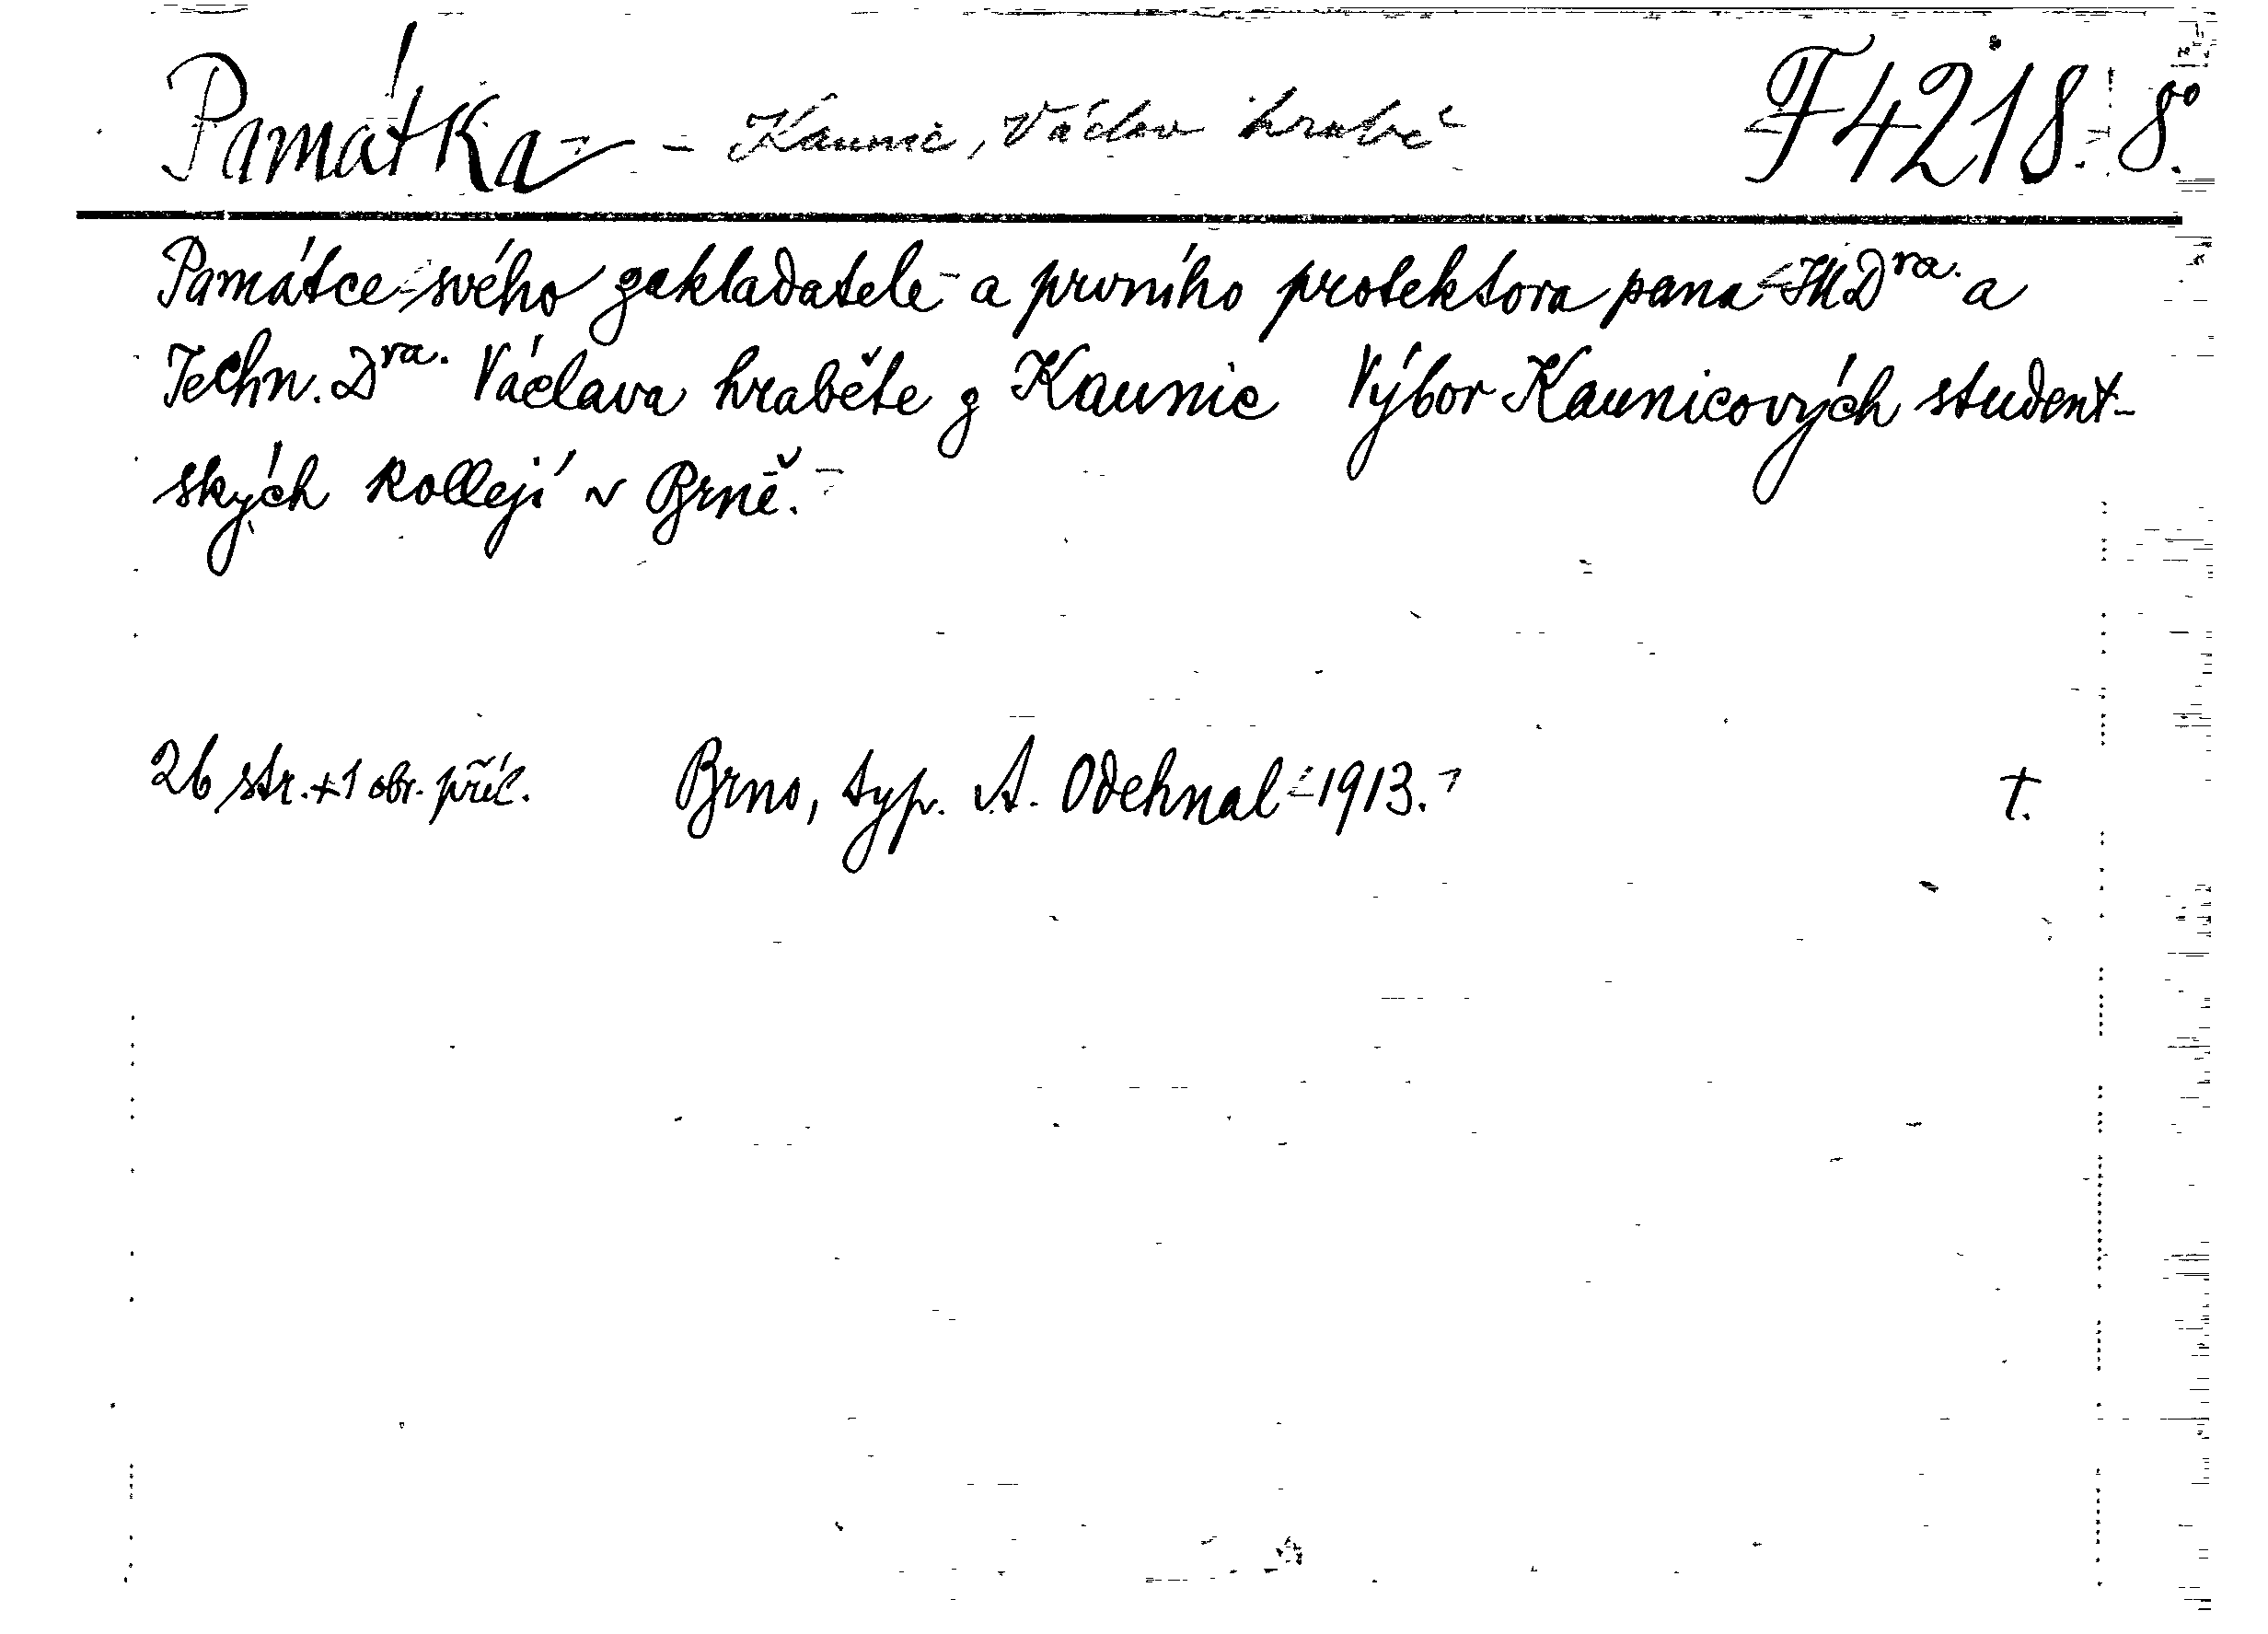 Památka - Kaunic, Václav hrabě F 4218. 8°.
Památce svého zakladatele a prvního protektora pana JUDra. a
Techn. Dra. Václava hraběte z Kaunic Výbor Kaunicových student-
ských kollejí v Brně.
26 str. + 1 obr. příl. Brno, typ. A. Odehnal 1913. t.